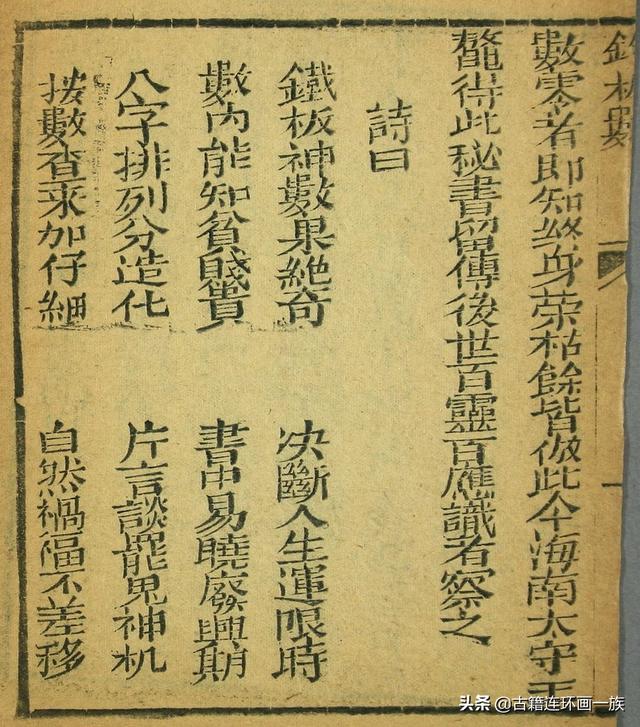 鐵板數
數零者即知終身荣枯餘皆倣此今海南太守王
鰲得此秘書留傳後世百靈百應識者察之
詩曰
鐵板神數果絶奇 决斷人生運限時
數内能知貧賤貴 書中易曉廢興期
八字排列分造化 片言談罷見神机
挨數查来加仔細 自然禍福不差移
头条 @古籍连环画一族